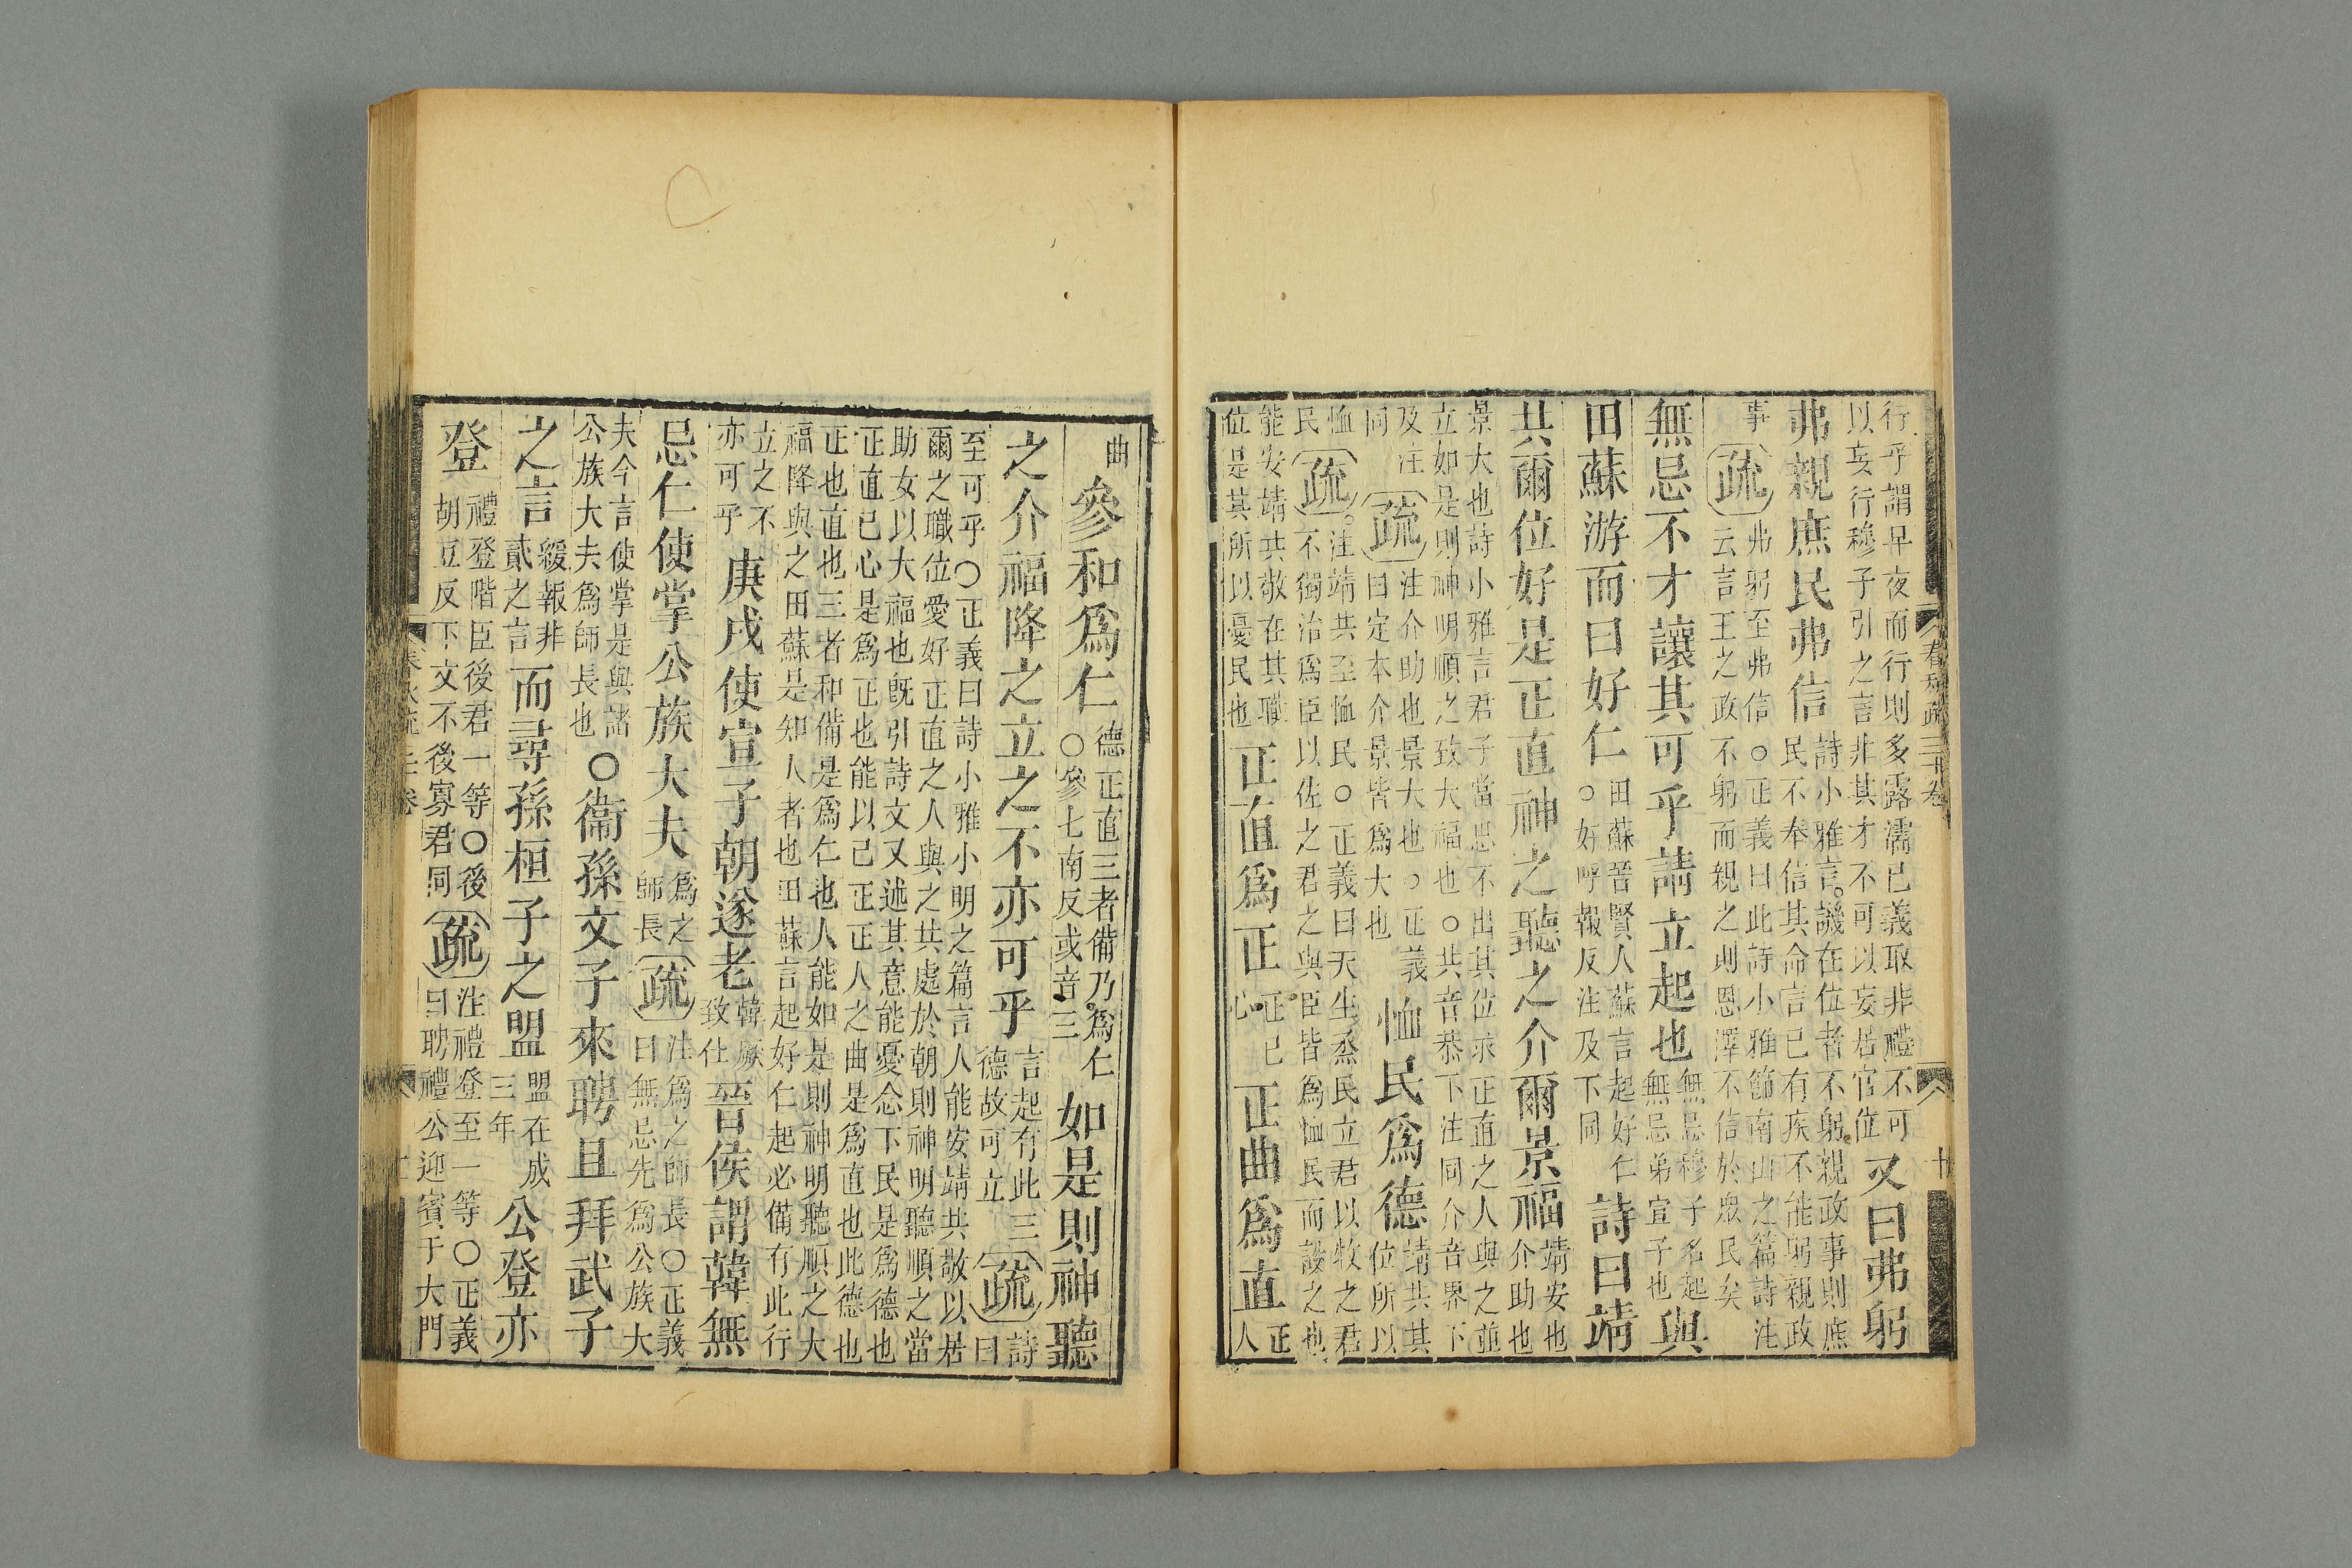 行乎謂早夜而行則多露濡已義取非禮不可
以妄行穆子引之言非其才不可以妄居官位
又曰弗躬
弗親庶民弗信
詩小雅言譏在位者不躬親政事則庶
民不奉信其命言已有疾不能躬親政
事
疏
弗躬至弗信○正義曰此詩小雅節南山之篇詩注
云言王之政不躬而親之則恩澤不信於眾民矣
無忌不才讓其可乎請立起也
無忌穆子名起
無忌弟宣子也
與
田蘇游而曰好仁
田蘇晉賢人蘇言起好仁
○好呼報反注及下同
詩曰靖
共爾位好是正直神之聽之介爾景福
靖安也
介助也
景大也詩小雅言君子當思不出其位求正直之人與之並
立如是則神明順之致大福也○共音恭下注同介音界下
及注
同
疏
注介助也景大也○正義
曰定本介景皆為大也
恤民為德
靖共其
位所以
恤
民
疏
注靖共至恤民○正義曰天生烝民立君以牧之君
不獨治為臣以佐之君之與臣皆為恤民而設之也
能安靖共敬在其職
位是其所以憂民也
正直為正
正己
心
正曲為直
正
人
曲
參和為仁
德正直三者備乃為仁
○參七南反或音三
如是則神聽
之介福降之立之不亦可乎
言起有此三
德故可立
疏
詩
曰
至可乎○正義曰詩小雅小明之篇言人能安靖共敬以居
爾之職位愛好正直之人與之共處於朝則神明聽順之當
助女以大福也既引詩文又述其意能憂念下民是為德也
正直己心是為正也能以己正正人之曲是為直也此德也
正也直也三者和備是為仁也人能如是則神明聽順之大
福降與之田蘇是知人者也田蘇言起好仁起必備有此行
立之不
亦可乎
庚戌使宣子朝遂老
韓厥
致仕
晉侯謂韓無
忌仁使掌公族大夫
為之
師長
疏
注為之師長○正義
曰無忌先為公族大
夫今言使掌是與諸
公族大夫為師長也
○衞孫文子來聘且拜武子
之言
緩報非
貳之言
而尋孫桓子之盟
盟在成
三年
公登亦
登
禮登階臣後君一等○後
胡豆反下文不後寡君同
疏
注禮登至一等○正義
曰聘禮公迎賓于大門